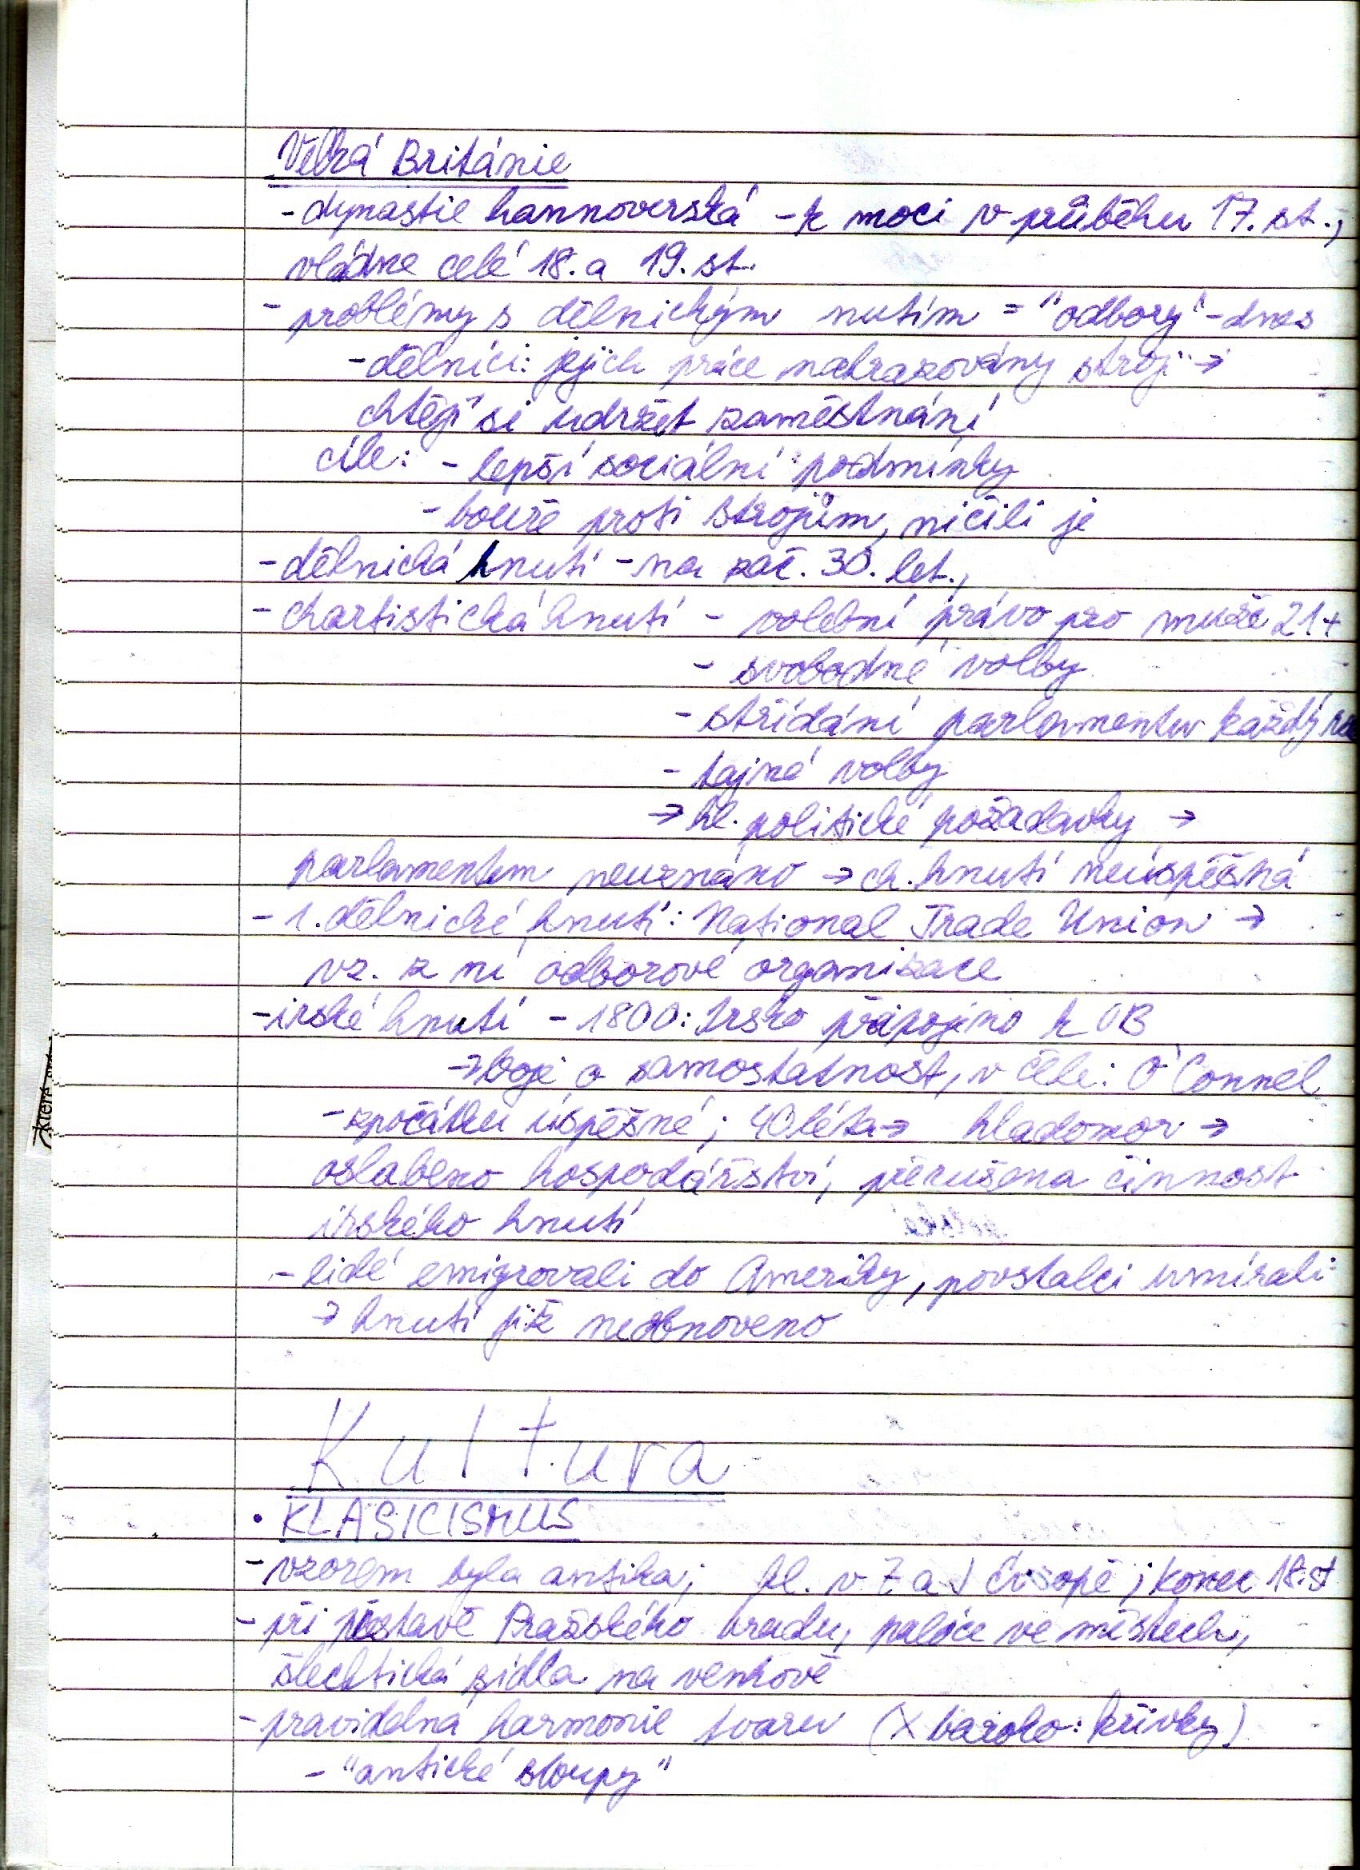 Velká Británie
- dynastie hannoverská - k moci v průběhu 17. st.,
vládne celé 18. a 19. st.
- problémy s dělnickým hnutím = "odbory" - dnes
- dělníci: jejich práce nahrazovány stroji →
chtějí si udržet zaměstnání
cíle: - lepší sociální podmínky
- bouře proti strojům, ničili je
- dělnická hnutí - na zač. 30. let.,
- chartistická hnutí - volební právo pro muže 21+
- svobodné volby
- střídání parlamentu každý rok
- tajné volby
→ hl. politické požadavky →
parlamentem neuznáno → ch. hnutí neúspěšná
- 1. dělnické hnutí: National Trade Union →
vz. z ní odborové organizace
- irské hnutí - 1800: Irsko připojeno k VB
→ boje o samostatnost, v čele: O'Connel
- zpočátku úspěšné; 40. léta → hladomor →
oslabeno hospodářství, přerušena činnost
irského hnutí
- lidé emigrovali do Ameriky, povstalci umírali
→ hnutí již neobnoveno
Kultura
• KLASICISMUS
- vzorem byla antika; hl. v Z a J Evropě; konec 18. st
- při přestavě Pražského hradu, paláce ve městech,
šlechtická sídla na venkově
- pravidelná harmonie tvarů (X baroko: křivky)
- "antické sloupy"